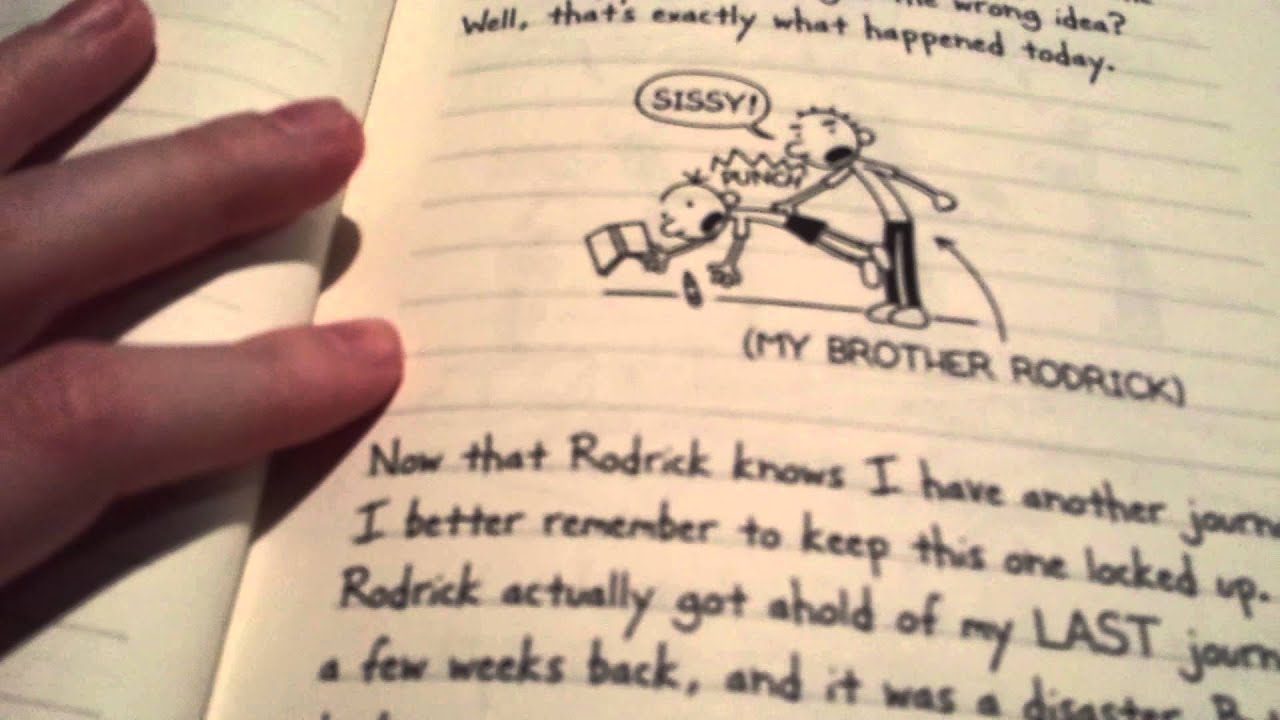 the wrong idea?
Well, that's exactly what happened today.
SISSY!
PUNCH
(MY BROTHER RODRICK)
Now that Rodrick knows I have another journ
I better remember to keep this one locked up.
Rodrick actually got ahold of my LAST journ
a few weeks back, and it was a disaster. B